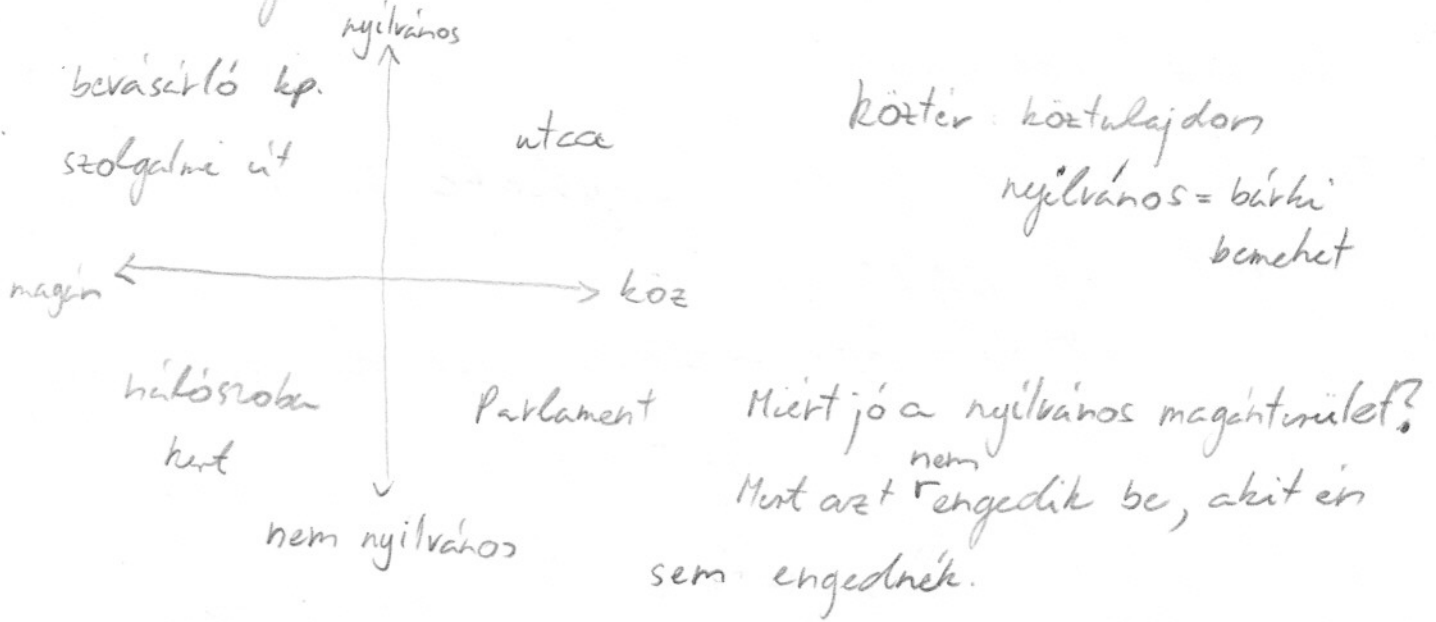 nyilvános
bevásárló kp.
szolgalmi út
utca
magán
köz
hálószoba
kert
Parlament
nem nyilvános
köztér köztulajdon
nyilvános = bárki
bemehet
Miért jó a nyilvános magánterület?
nem
Mert azt engedik be, akit én
sem engednék.